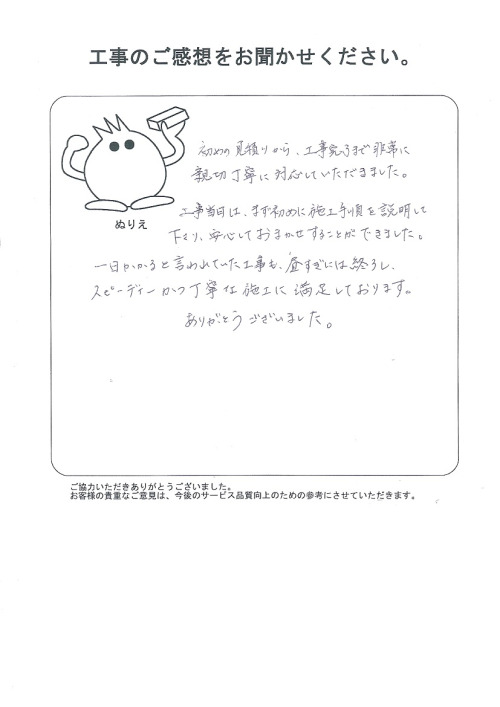 工事のご感想をお聞かせください。
初めの見積りから、工事完了まで非常に
親切丁寧に対応していただきました。
ぬりえ
工事当日は、まず初めに施工手順を説明して
下さり、安心しておまかせすることができました。
一日かかると言われていた工事も、昼すぎには終了し、
スピーディーかつ丁寧な施工に満足しております。
ありがとうございました。
ご協力いただきありがとうございました。
お客様の貴重なご意見は、今後のサービス品質向上のための参考にさせていただきます。